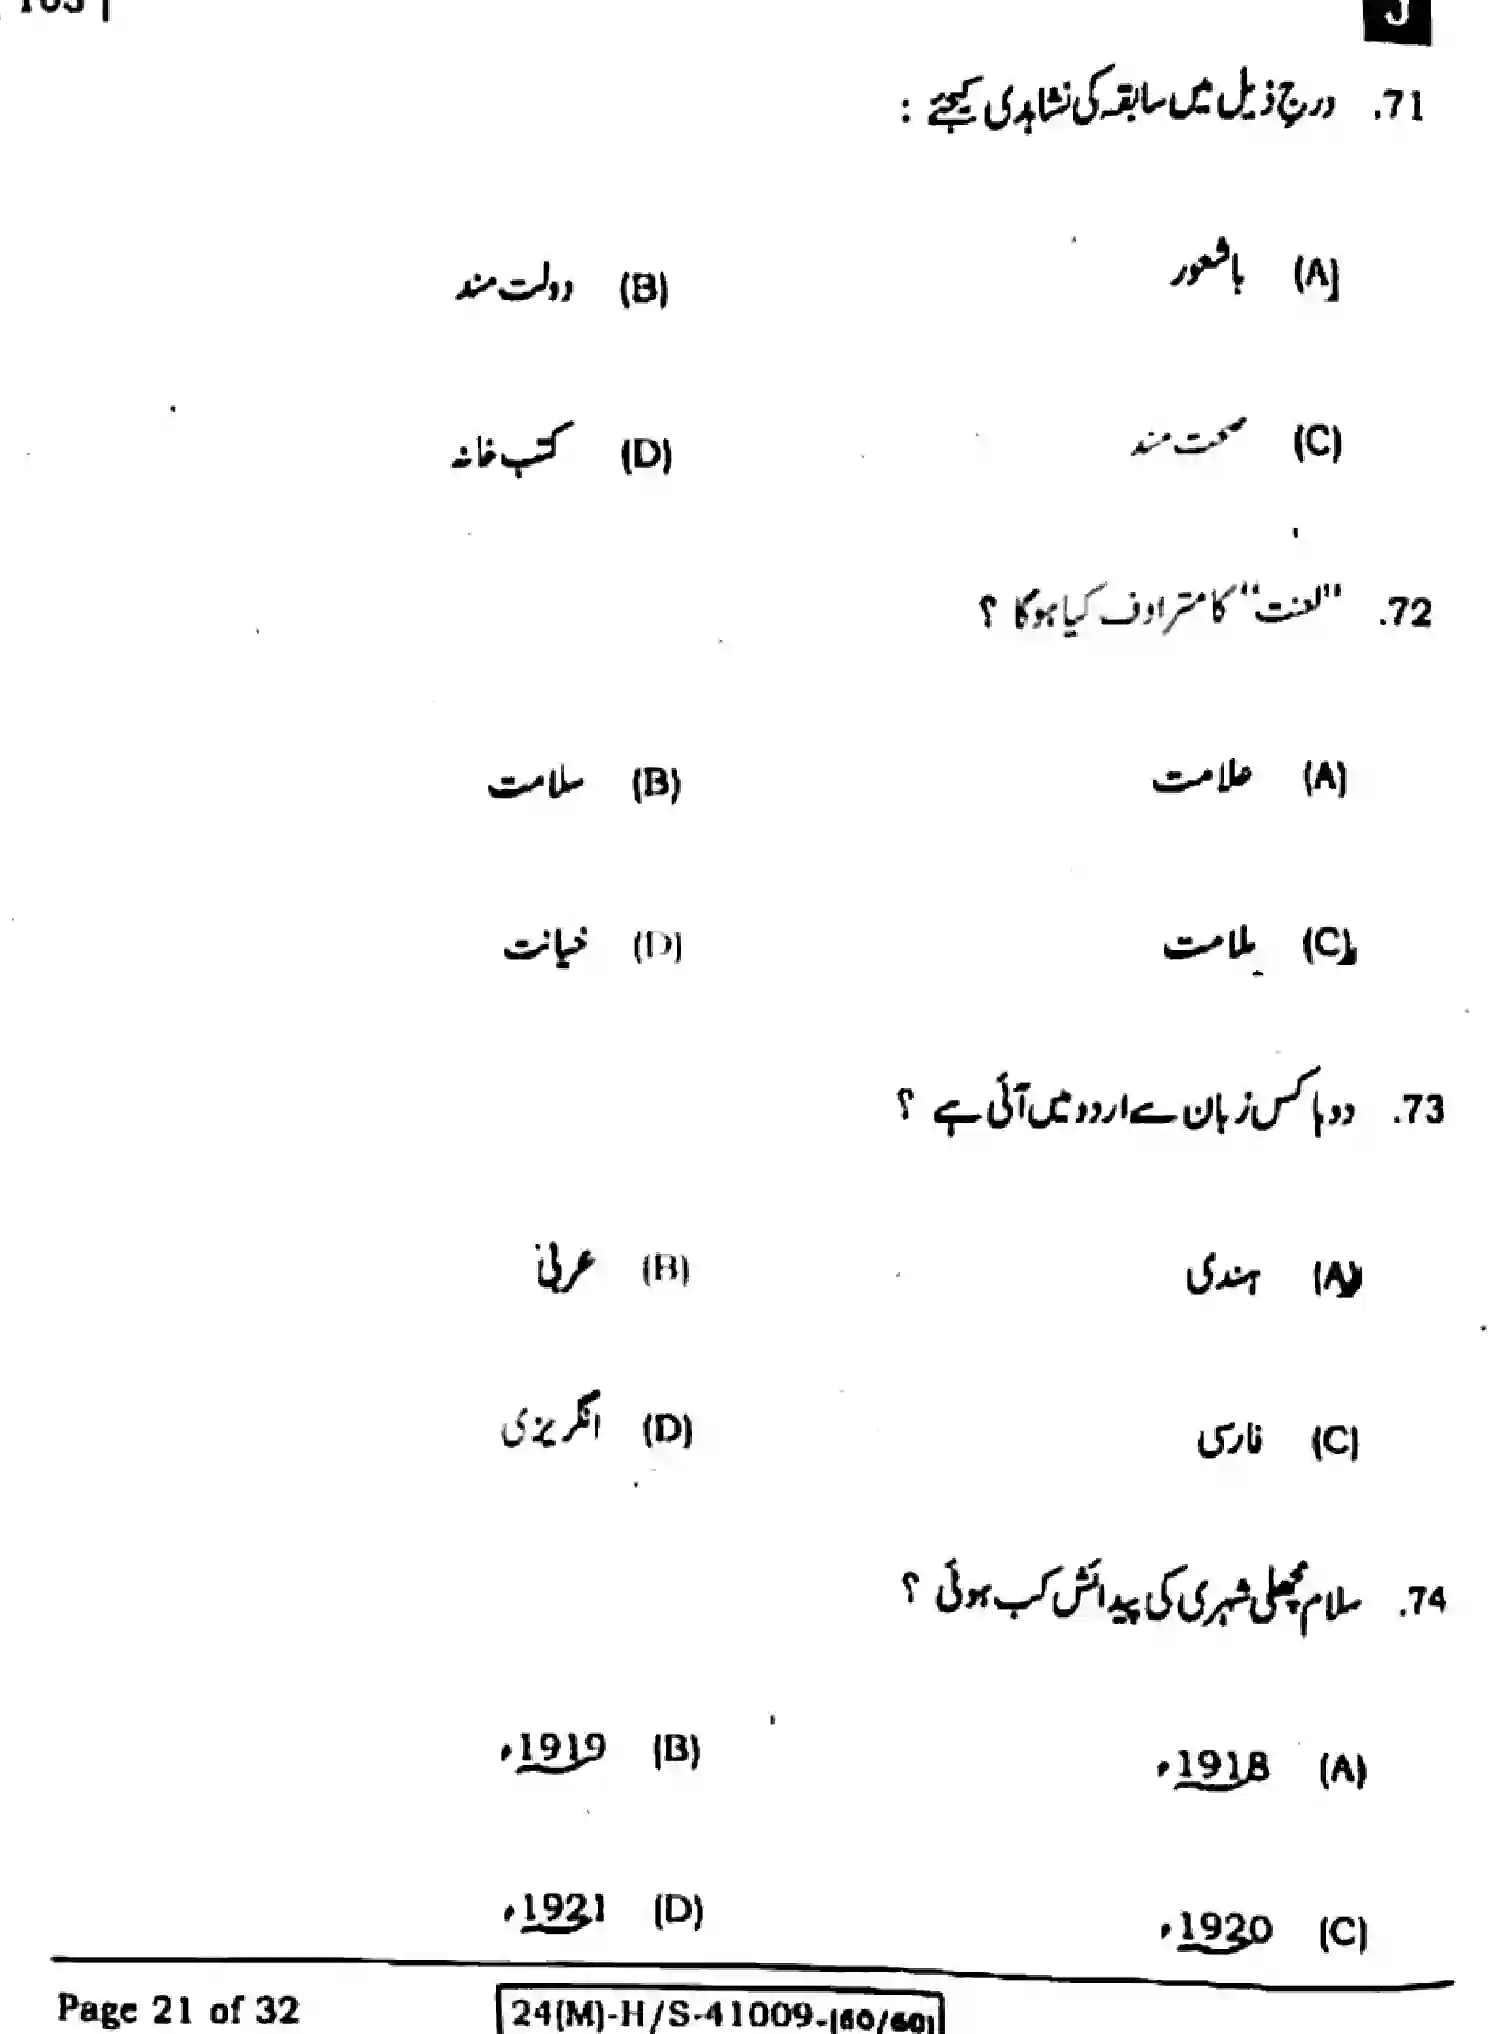 J
71. درج ذیل میں سابقہ کی نشاہدی کیجئے :
(A) باشعور (B) دولت مند
(C) صحت مند (D) کتب خانہ
72. "لعنت" کا مترادف کیا ہوگا ؟
(A) علامت (B) سلامت
(C) ملامت (D) خیانت
73. دوہا کس زبان سے اردو میں آئی ہے ؟
(A) ہندی (B) عربی
(C) فارسی (D) انگریزی
74. سلام مچھلی شہری کی پیدائش کب ہوئی ؟
(A) 1918ء (B) 1919ء
(C) 1920ء (D) 1921ء
Page 21 of 32 24(M)-H/S-41009-(60/60)